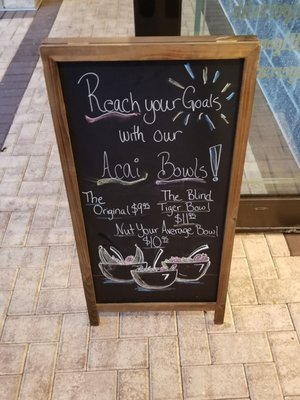 Reach your Goals
with our
Acai Bowls!
The Original $9.95
The Blind Tiger Bowl $11.95
Nut Your Average Bowl
$10.95